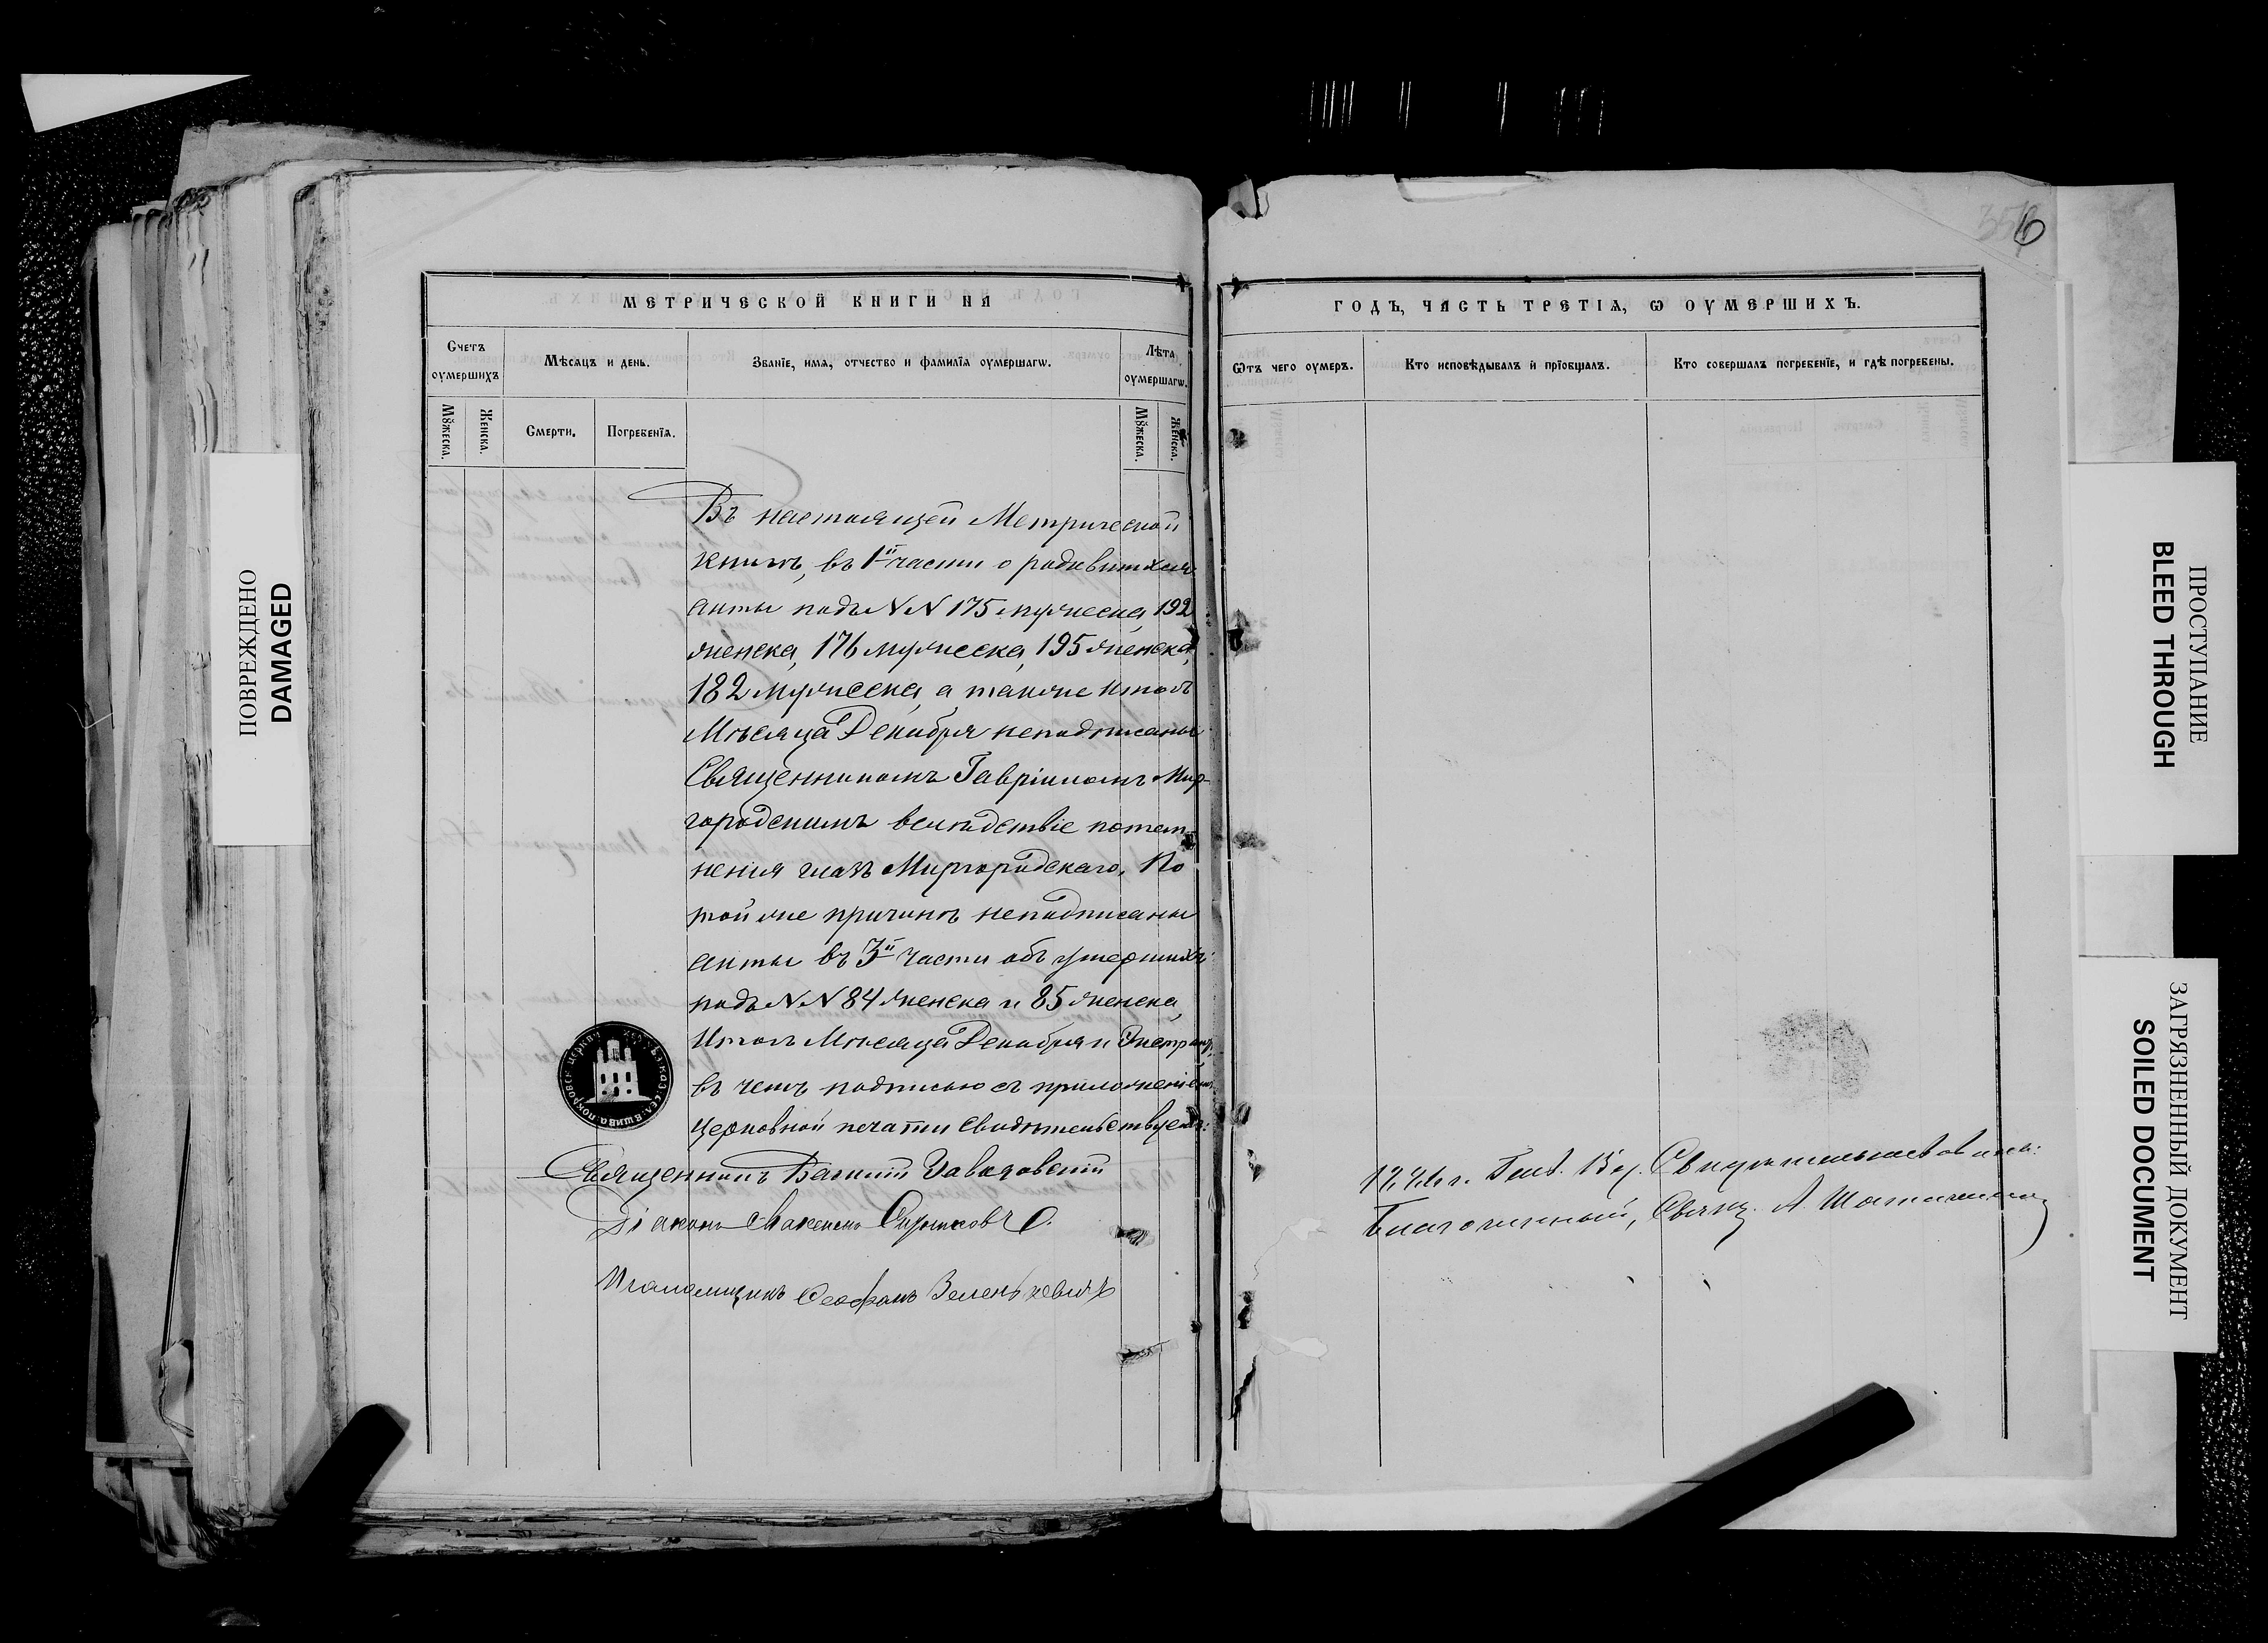 МЕТРИЧЕСКОЙ КНИГИ НА
Счетъ оумершихъ
Мѣсяцъ и день.
Званїе, имя, отчество и фамилїя оумершагѡ.
Лѣта оумершагѡ.
Мꙋжеска.
Женска.
Смерти.
Погребенїя.
Мꙋжеска.
Женска.
Въ настоящей Метрической
книгѣ, въ 1й части о родившихся
акты подъ NN 175 мужеска, 192
женска, 176 мужеска, 195 женска,
182 мужеска, а также итогъ
Мѣсяца Декабря неподписаны
Священникомъ Гавріиломъ Мир-
городскимъ вслѣдствіе потем-
нения глазъ Миргородскаго. По
той же причинѣ неподписаны
акты въ 3й части объ умершихъ
подъ NN 84 женска и 85 женска,
Итогъ Мѣсяца Декабря и
въ чемъ подписью съ приложеніемъ
церковной печати свидѣтельствуемъ:
Священникъ Василій Заводовскій
Діаконъ
Псаломщикъ Феофанъ Зеленкевичъ
ГОДЪ, ЧАСТЬ ТРЕТІЯ, Ѡ ОУМЕРШИХЪ.
Ѿтъ чего оумеръ.
Кто исповѣдывалъ и прїобщалъ.
Кто совершалъ погребенїе, и гдѣ погребены.
Свидѣтельствовалъ:
Благочинный, Свящ. А.
6
ПОВРЕЖДЕНО
DAMAGED
ПРОСТУПАНИЕ
BLEED THROUGH
ЗАГРЯЗНЕННЫЙ ДОКУМЕНТ
SOILED DOCUMENT